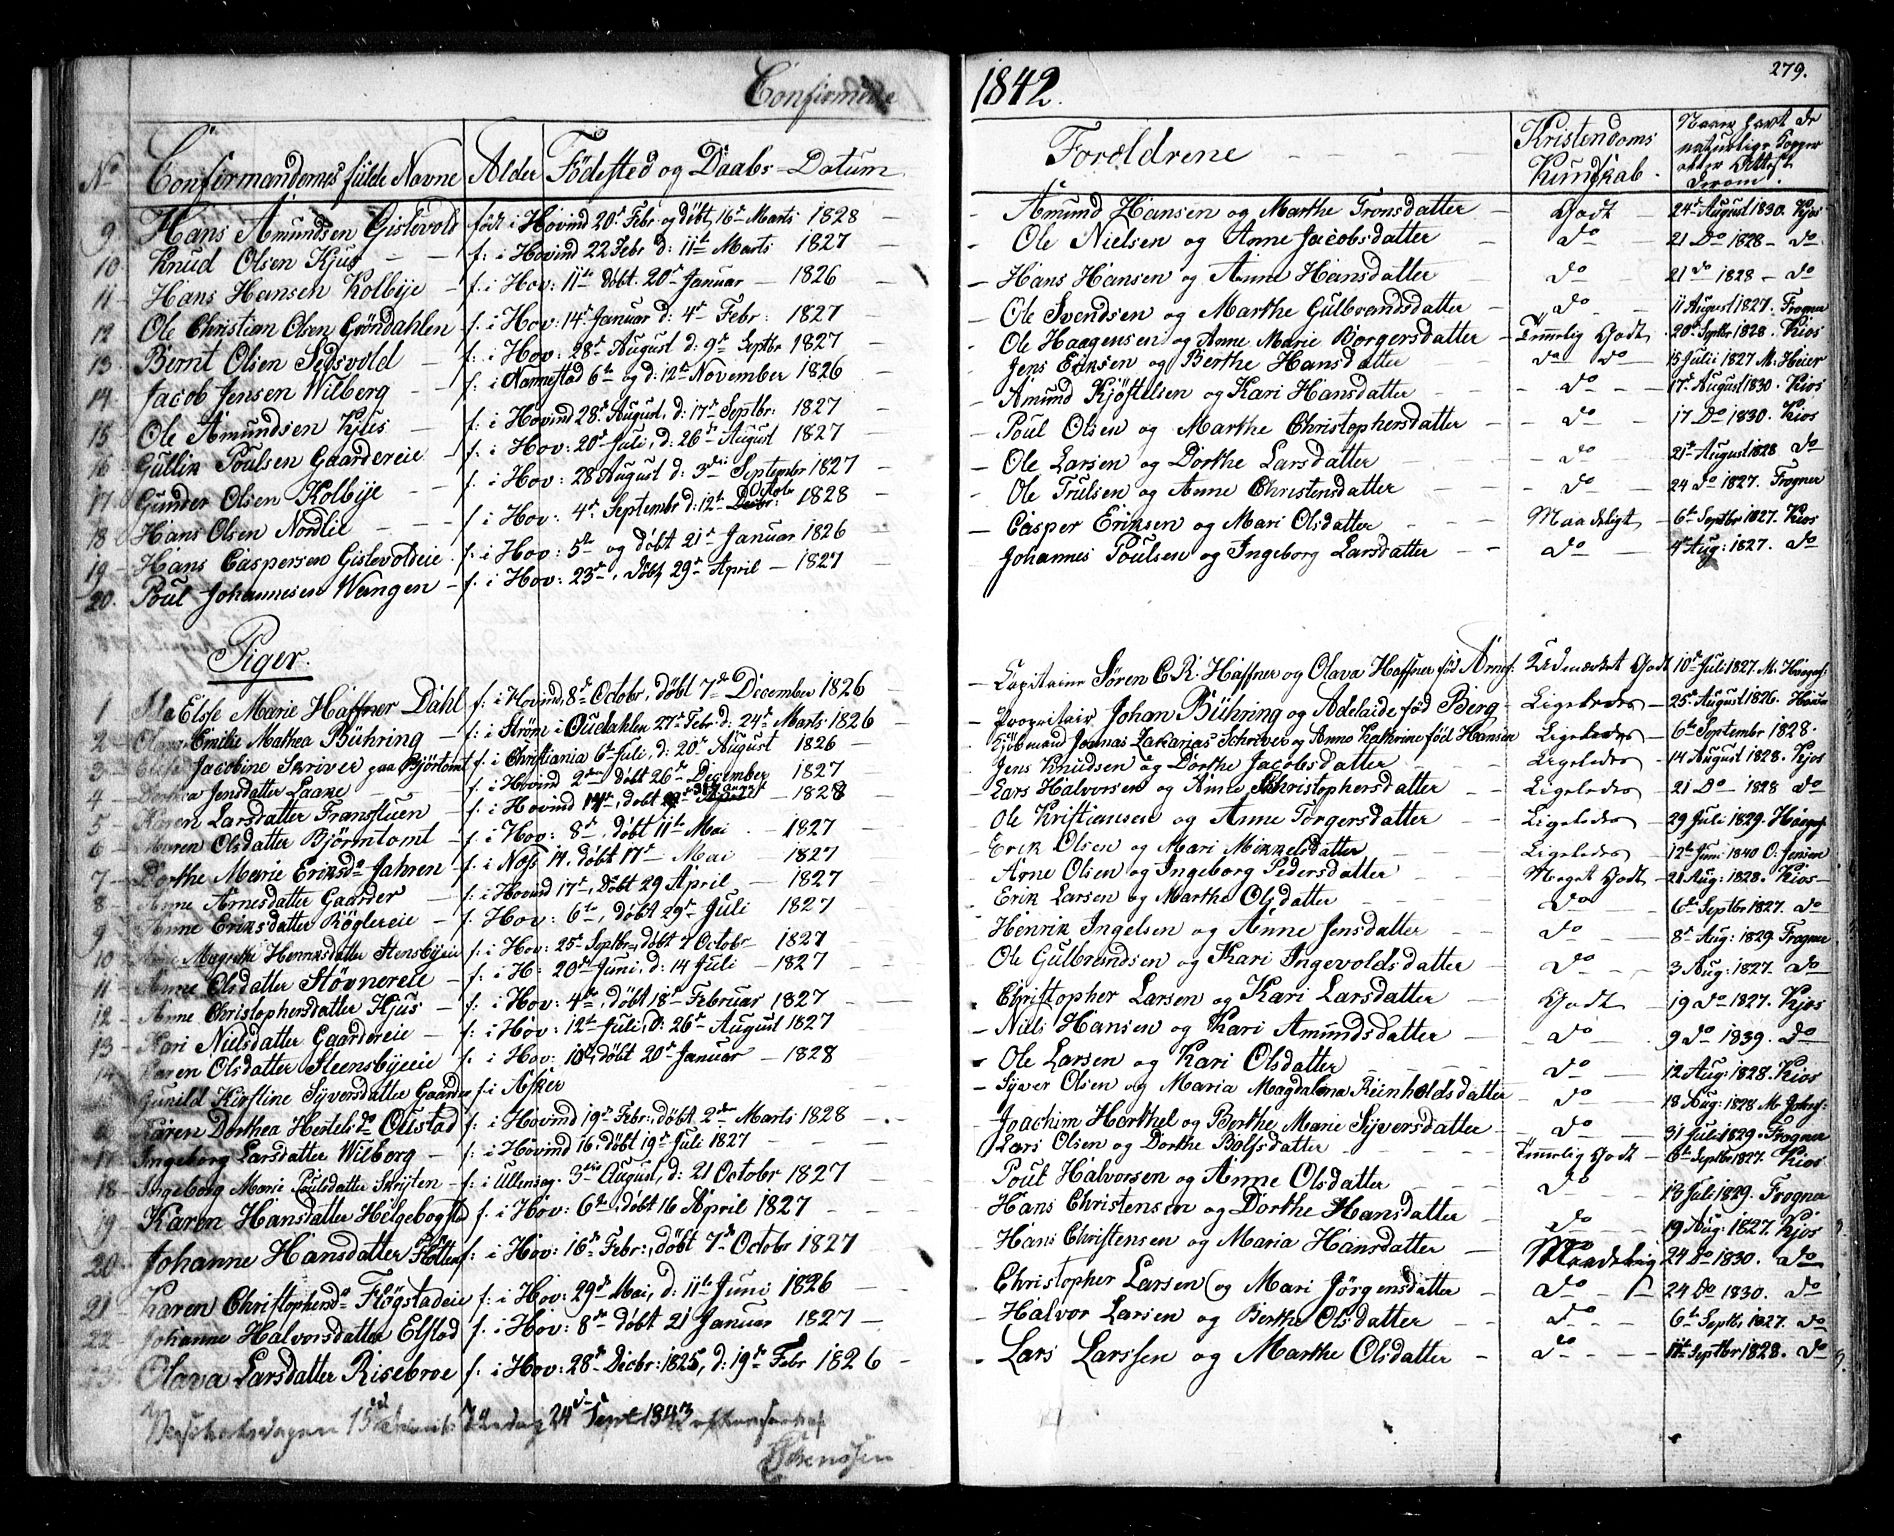 Confirmerte
1842.
279.
No Confirmandernes fulde Navne Alder Födested og Daabs-Datum
Forældrene Kristendoms Kundskab. Naar havt de naturlige Kopper eller Attest derom.
9 Hans Amundsen Gislevold født i Hovind 20de Febr og døbt 16de Marts 1828 - Amund Hansen og Marthe Tronsdatter Godt 24de August 1830. Kjos
10 Knud Olsen Kjus f: i Hovind 22 Febr d: 11te Marts 1827 - Ole Nielsen og Anne Jacobsdatter do 21 Do 1828 - do
11 Hans Hansen Kolbÿe f: i Hov: 11te døbt 20de Januar 1826 - Hans Hansen og Anne Hansdatter do 21 do 1828 - do
12 Ole Christian Olsen Gröndahlen f. i Hov: 14de Januar d: 4de Febr: 1827 - Ole Svendsen og Marthe Gulbrandsdatter do 11 August 1827. Frogner
13 Bernt Olsen Sedsvold f: i Hov: 28de August d: 9de Septbr 1827 - Ole Haagensen og Anne Marie Borgersdatter Temmelig Godt 20de Septbr 1828. Kios
14 Jacob Jensen Wilberg f. i Nannestad 6te og d: 12te November 1826 - Jens Eriksen og Berthe Hansdatter do do 15 Julii 1827 M. Heier
15 Ole Amundsen Kjus f: i Hovind 28de August, d: 17de Septbr: 1827 - Amund Kjöstelsen og Kari Hansdatter do 17de August 1830. Kios
16 Gullik Poulsen Gaardereie f. i Hov: 20de Juli, d: 26de August 1827 - Poul Olsen og Marthe Christophersdatter do 17 Do 1830. Kios
17 Gunder Olsen Kolbÿe f. i Hov: 28 August d: 3die September 1827 - Ole Larsen og Dorthe Larsdatter do 21de August 1828 do
18 Hans Olsen Nordlie f. i Hov: 4de Septembr d: 12te Octob: 1828 - Ole Trulsen og Anne Christensdatter do 24 Do 1827. Frogner
19 Hans Caspersen Gislevoldeie f: i Hov: 5te og døbt 21de Januar 1826 - Casper Eriksen og Mari Olsdatter Maadeligt 6te Septbr 1827. Kios
20. Poul Johannesen Wangen f. i Hov: 23de, døbt 29de April 1827 - Johannes Poulsen og Ingeborg Larsdatter do 4de Aug: 1827. do
Piger.
1 Ida Elsse Marie Haffner Dahl f: i Hovind, 8de Octobr, døbt 7de December 1826 - Capitaine Søren C. R. Haffner og Olava Haffner fød Udmærket Godt 10de Juli 1827. M.
2 Olava Emilie Mathea Bühring f: i Ström i Oudahlen 27de Febr. d: 24de Marts 1826 - Proprietair Johan Bühring og Adelaide fød Berg Ligeledes 25de August 1826.
3 Jacobine Skriver paa Bjørtomt f: i Christiania 6te Juli, d: 20de August 1826 - Joenas Zakarias Schriver og Anne Kathrine fød Hansen Ligeledes 6te Septembr 1828.
4 Dorthea Jensdatter Laane f: i Hovind 2den døbt 26de December 1827 - Jens Knudsen og Dorthe Jacobsdatter Ligeledes 14 August 1828. Kjos
5 Karen Larsdatter Transtuen f: i Hovind 14de, døbt 1828 - Lars Halvorsen og Anne Christophersdatter Ligeledes 21 Do 1828 do
6 Maren Olsdatter Bjørntomt f: i Hov: 8de, døbt 11te Mai 1827 - Ole Kristiansen og Anne Torgersdatter Ligeledes 29 Juli 1829.
7 Dorthe Marie Eriksdr Jahren f: i Næs 14, døbt 17de Mai 1827 - Erik Olsen og Mari Mikkelsdatter Ligeledes 12te Juni 1840 O: Jensen
8 Anne Arnesdatter Gaarder f: i Hovind 17de, døbt 29 April 1827 - Arne Olsen og Ingeborg Pedersdatter Meget Godt 21 Aug: 1828. Kios
9 Anne Eriksdatter Röglereie f. Hov: 6te, døbt 29de Juli 1827 - Erik Larsen og Marthe Olsdatter do 6te Septbr 1827. do
10 Magrethe Henriksdatter Stensbyeie f: i Hov: 25de Septbr, døbt 7 Octobr 1827 - Henrik Ingelsen og Anne Jensdatter do 8de Aug: 1829. Frogner
11 Anne Olsdatter Støvnereie f. i H: 20de Juni, d: 14 Juli 1827 - Ole Gulbrandsen og Kari Ingevoldsdatter do 3 Aug: 1827. do
12 Anne Christophersdatter Kjus f: i Hov: 4de, døbt 18de Februar 1827 - Christopher Larsen og Kari Larsdatter Godt 19 Do 1827. Kjos
13 Kari Nielsdatter Gaardereie f: i Hov: 12te Juli, d: 26de August 1827 - Niels Hansen og Kari Amundsdatter do 9 Do 1839. do
14 Karen Olsdatter Steensbyeie f. i Hov: 10de, døbt 20de Januar 1828 - Ole Larsen og Kari Olsdatter do 12 Aug: 1828. Kios
Gunild Kirstine Syversdatter Gaarder f: i Asker - Syver Olsen og Maria Magdalena Reinholdsdatter do 18 Aug: 1828
Karen Dorthea Hertelsdr Oustad f: i Hovind 19de Febr:, døbt 2den Marts 1828 - Joachim Herthel og Berthe Marie Syversdatter do 31 Juli 1829. Frogner
17 Ingeborg Larsdatter Wilberg f: i Hovind 16, døbt 19de Juli 1827 - Lars Olsen og Dorthe Temmelig Godt 8te Septbr 1827. Kios
18 Ingeborg Marie Poulsdatter f: i Ullensag. 3die August, d: 21 Octobr 1827 - Poul Halvorsen og Anne Olsdatter do 13 Juli 1829. Frogner
19 Karen Hansdatter Helgebogstad f: i Hov: 6te, døbt 16 April 1827 - Hans Christensen og Dorthe Hansdatter do 19 Aug: 1827. Kios
20 Johanne Hansdatter f: i Hov: 16de Febr:, døbt 7de Octobr 1827 - Hans Christensen og Maria Hansdatter Maadelig 24 Do 1830. do
21 Karen Christophersdr Flögstadeie f: i Hov: 29de Mai, d: 11te Juni 1826 - Christopher Larsen og Mari Jörgensdatter do 24 Do 1830. do
22 Johanne Halvorsdatter Elstad f. i Hov: 8de døbt 21 Januar 1827 - Halvor Larsen og Berthe Olsdatter do 6te Septb, 1827. do
23 Olava Larsdatter Risebroe f: i Hov: 28de Decbr: 1825, d: 19de Febr 1826 - Lars Larssen og Marthe Olsdatter do 11te Septbr 1828. do
24de Sept 1843